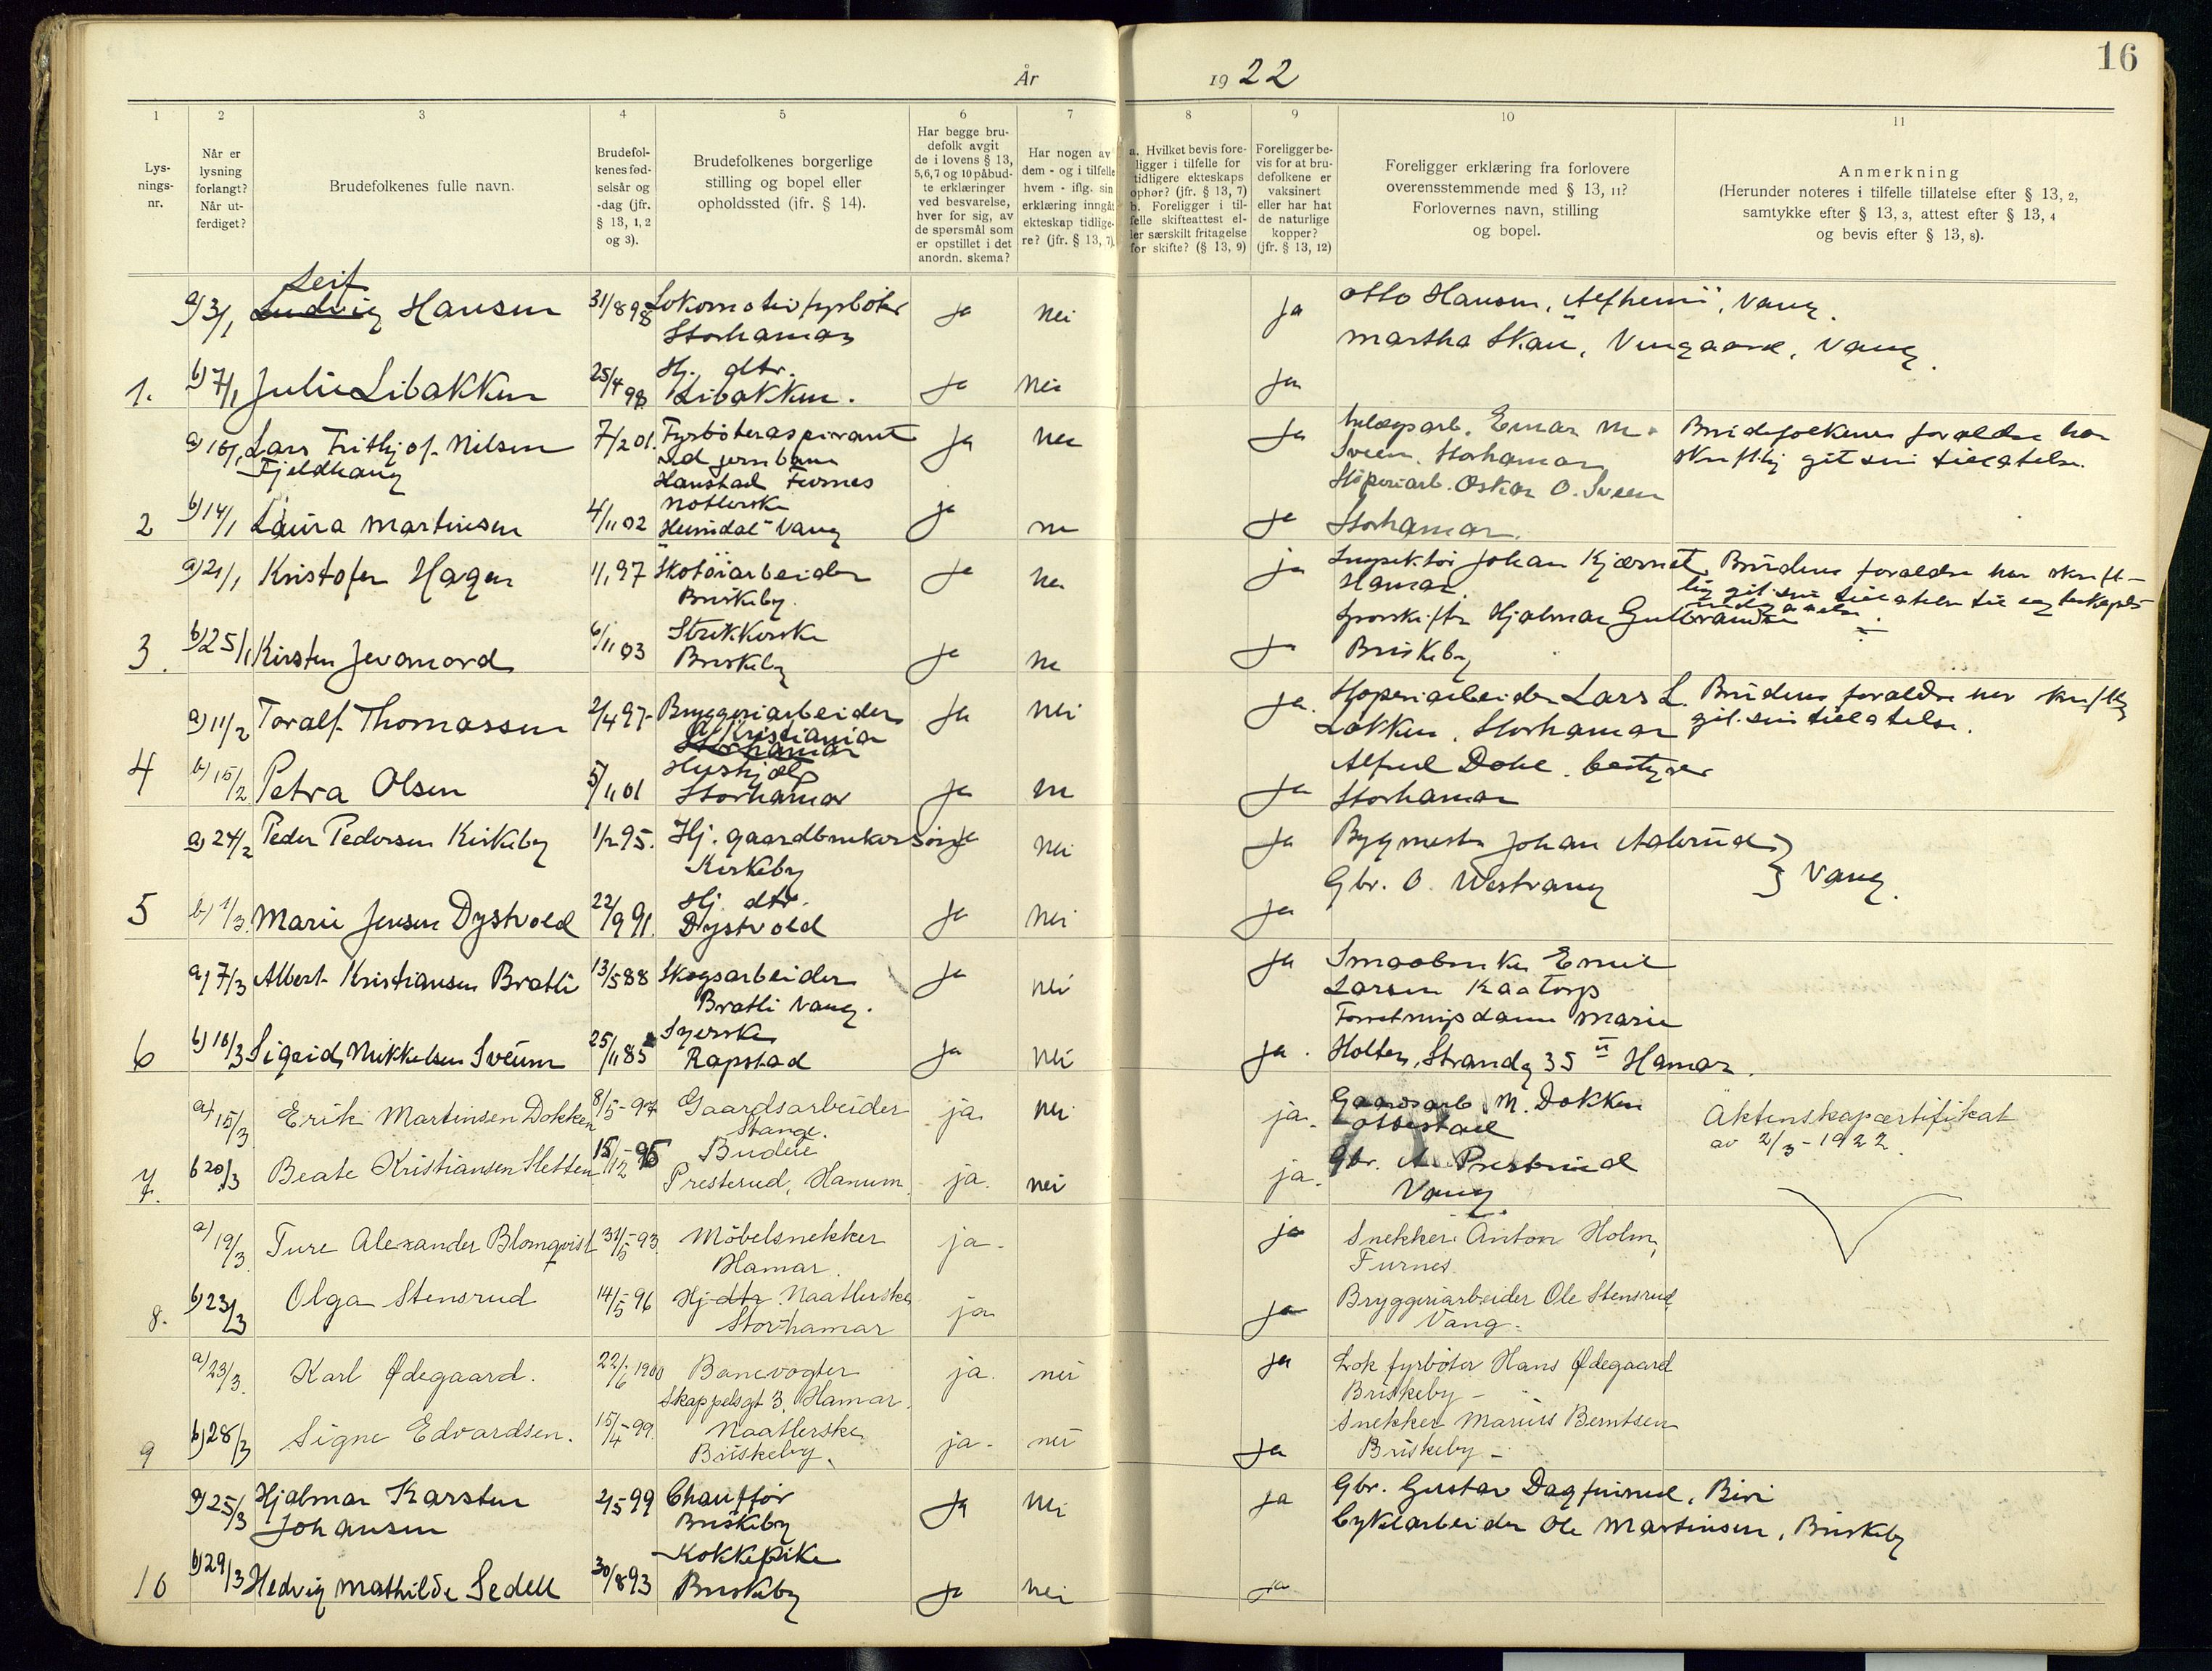 16
År 1922
1
2
3
4
5
6
7
8
9
10
11
Lys-
nings-
nr.
Når er
lysning
forlangt?
Når ut-
ferdiget?
Brudefolkenes fulle navn.
Brudefol-
kenes fød-
selsår og
-dag (jfr.
§ 13, 1, 2
og 3).
Brudefolkenes borgerlige
stilling og bopel eller
opholdssted (jfr. § 14).
Har begge bru-
defolk avgit
de i lovens § 13,
5,6,7 og 10 påbud-
te erklæringer
ved besvarelse,
hver for sig, av
de spørsmål som
er opstillet i det
anordn. skema?
Har nogen av
dem - og i tilfelle
hvem - iflg. sin
erklæring inngåt
ekteskap tidlige-
re? (jfr. § 13, 7)
a. Hvilket bevis fore-
ligger i tilfelle for
tidligere ekteskaps
ophør? (jfr. § 13, 7)
b. Foreligger i til-
felle skifteattest el-
ler særskilt fritagelse
for skifte? (§ 13, 9)
Foreligger be-
vis for at bru-
defolkene er
vaksinert
eller har hat
de naturlige
kopper?
(jfr. § 13, 12)
Foreligger erklæring fra forlovere
overensstemmende med § 13, 11?
Forlovernes navn, stilling
og bopel.
Anmerkning
(Herunder noteres i tilfelle tillatelse efter § 13, 2,
samtykke efter § 13, 3, attest efter § 13, 4
og bevis efter § 13, 8).
Leif
a) 3/1 Ludvig Hansen 31/8 98 Lokomotivfyrbøter ja nei ja Otto Hansen, Alfheim, Vang.
Storhamar Martha Skau, Vang.
1. b) 7/1 Julie Libakken 25/4 98 Hj. dtr. ja nei ja
Libakken.
a) 10/1 Lars Frithjof Nilsen 7/2 01. Fyrbøteraspirant ja nei ja Einar M. Brudefolkenes forældre har
Fjeldhaug ved jernbane Sveen, Storhamar skriftlig git sin tillatelse.
Hanstad Furnes Støperiarb. Oskar O. Sveen
2 b) 14/1 Laura Martinsen 4/11 02 Nøtterske ja nei ja Storhamar.
Heimdal Vang
a) 21/1 Kristofer Hagen 1/1 97 Skotøiarbeider ja nei ja Inspektør Johan Kjærnet, Brudens forældre har skrift-
Briskeby. Hamar lig git sin tillatelse til egteskapets
Hjalmar Gulbrandsen indgaaelse.
3. b) 25/1 Kirsten Jevamord 6/11 03 Strikkerske ja nei ja Briskeby
Briskeby
a) 11/2 Toralf Thomassen 2/4 97 Bryggeriarbeider ja nei ja. Støperiarbeider Lars L. Brudens forældre har skriftlig
Kristiania Løkken, Storhamar git sin tillatelse.
Storhamar
4 b) 15/2 Petra Olsen 5/11 01 Hushjælp ja nei ja Alfred Dohl. bestyrer
Storhamar Storhamar
a) 24/2 Peder Pedersen Kirkeby 1/2 95. Hj. gaardbrukersøn ja nei ja Bygmester Johan Aalerud
Kirkeby Gbr. O. Westvang } Vang.
5 b) 1/3. Marie Jensen Dystvold 22/9 91. Hj. dtr. ja nei ja
Dystvold
a) 7/3 Albert Kristiansen Bratli 13/5 88 Skogsarbeider ja nei ja Smaabruker Emil
Bratli Vang. Larsen Kaatorp
6 b) 10/3 Sigrid Mikkelsen Sveum 25/11 85 Syerske ja nei ja. Forretningsdame Marie
Rapstad Holten, Strandg 35 II Hamar.
a) 15/3 Erik Martinsen Dokken 8/5 - 97 Gaardsarbeider ja. nei ja. Gaardsarb. M. Dokken Äktenskapcertifikat
Stange. Ottestad av 2/3 - 1922.
7. b 20/3 Beate Kristiansen Sletten 15/12 - 95 Budeie ja. nei ja. Gbr. A. Presterud
Presterud, Hanum. Vang.
a) 19/3. Ture Alexander Blomqvist 31/5 - 93. Møbelsnekker ja - ja Snekker Anton Holm,
Hamar. Furnes.
8. b) 23/3 Olga Stensrud 14/5 - 96 Hj dtr Naatlerske ja ja Bryggeriarbeider Ole Stensrud,
Storhamar Vang.
a) 23/3. Karl Ødegaard. 22/6 1900 Banevogter ja. nei ja Lok fyrbøter Hans Ødegaard
Skappelsgt 3. Hamar. Briskeby -
9 b) 28/3 Signe Edvardsen. 15/4 - 99. Naatlerske ja - nei ja Snekker Marius Berntsen
Briskeby. Briskeby -
a) 25/3 Hjalmar Karsten 2/5 99 Chauffør ja nei ja Gbr. Gustav Dagfinrud, Biri
Johansen Briskeby Cykelarbeider Ole Martinsen, Briskeby
10 b) 29/3 Hedvig Mathilde Sedell 30/8 93 Kokkepike ja nei ja
Briskeby